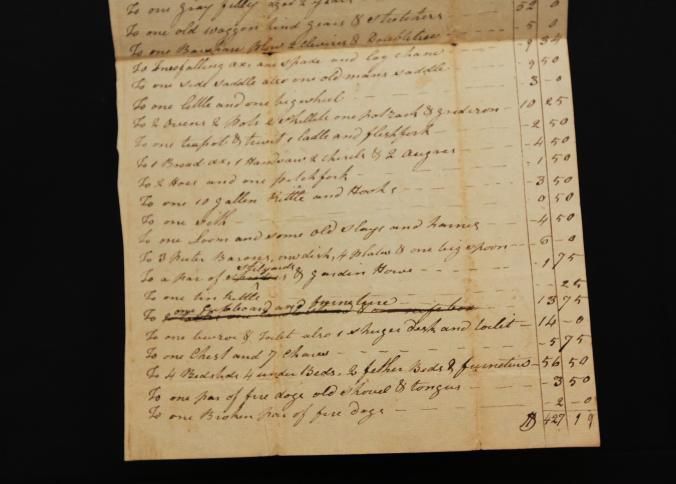 To one gray filly aged 2 years 52 0
To one old waggon hind gears & Stretchers 5 0
To one Barshare Plow 2 clevises & Doubletree 9 34
To one falling ax one spade and log chane 9 50
To one side saddle also one old mans saddle 3 0
To one little and one big wheel 10 25
To 2 Ovens 2 Pots 2 skillets one pot rack & gridiron 2 50
To one teapot & 1 ladle and fleshfork 4 50
To 1 Broad ax 1 Handsaw 2 chisels & 2 Augers 1 50
To 2 Hoes and one pitchfork 3 50
To one 10 gallen Kittle and Hooks 0 50
To one Sith 4 50
To one Loom and some old Slays and harnes 6 0
To 3 Puter Basons, one dish, 4 plates & one big spoon 1 75
To a par of stilyards & garden Howe 25
To one ten Kettle 13 75
To one Cupboard and furneture 14 0
To one & Toilit also 1 Shuger Desk and toilit 5 75
To one Chest and 7 Chares
To 4 Bedsteds 4 under Beds, 2 fether Beds & furneture 56 50
To one par of fire dogs old Shovel & tongus 3 50
To one Broken par of fire dogs 2 0
$ 427 19